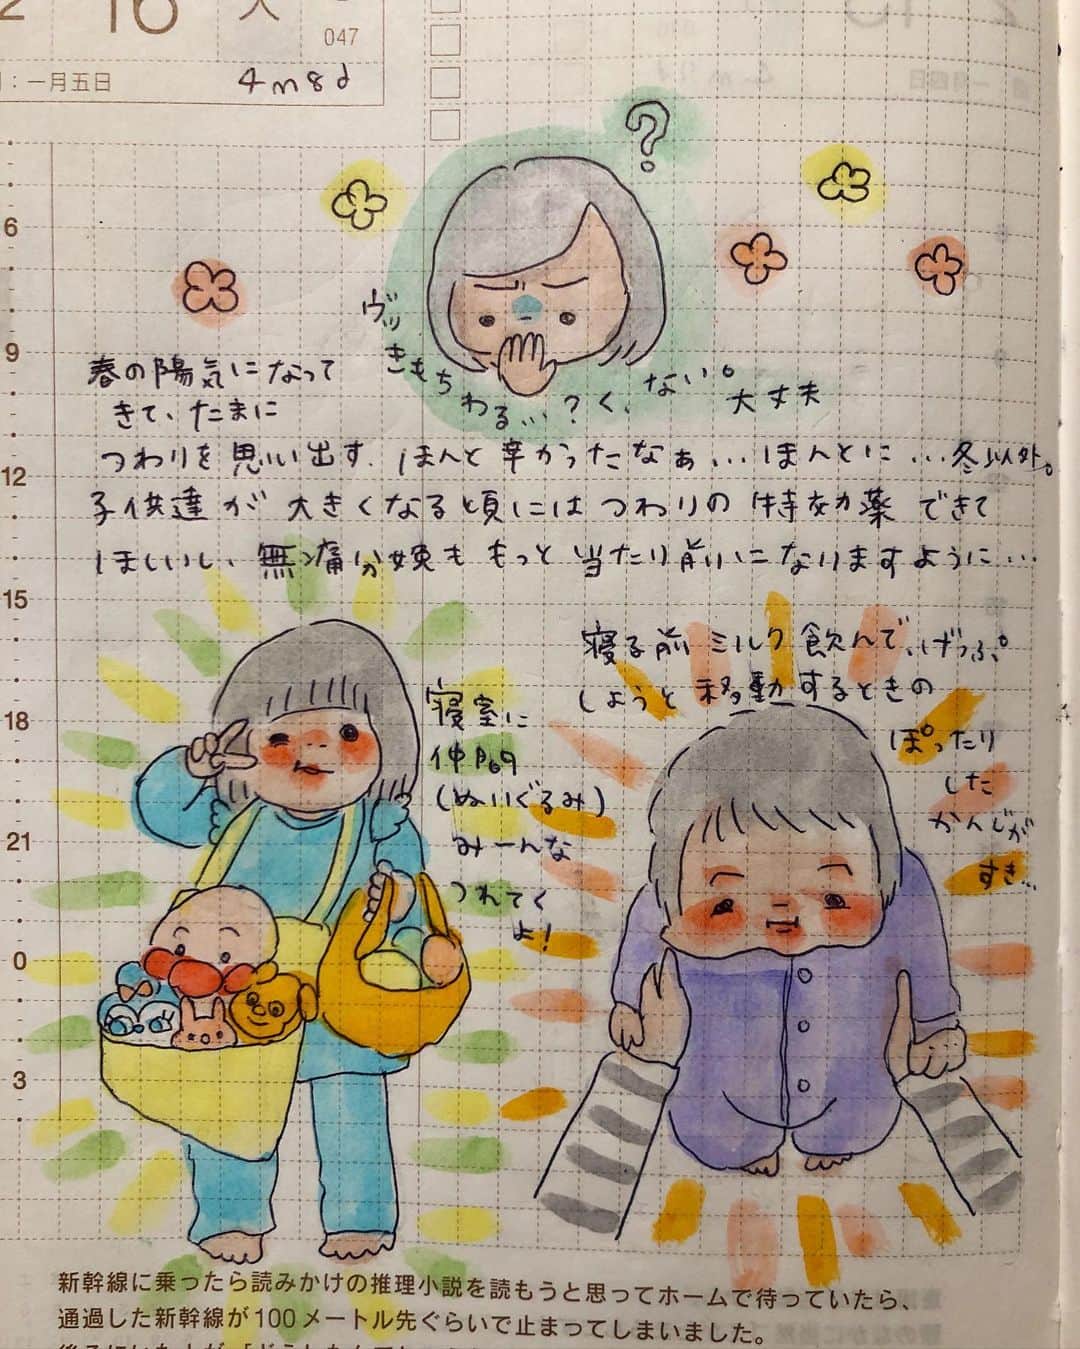 16 火
047
一月五日
4m8d
?
ヴッ
きもちわる...？く、ない。
大丈夫
春の陽気になって
きて、たまに
つわりを思い出す. ほんと辛かったなぁ...ほんとに...冬以外。
子供達が大きくなる頃にはつわりの特効薬できて
ほしいし、無痛分娩ももっと当たり前になりますように...
寝室に
仲間
(ぬいぐるみ)
みーんな
つれてく
よ!
寝る前ミルク飲んで、げっぷ
しようと移動するときの
ぽったり
した
かんじが
すき...
6
9
12
15
18
21
0
3
新幹線に乗ったら読みかけの推理小説を読もうと思ってホームで待っていたら、
通過した新幹線が100メートル先ぐらいで止まってしまいました。